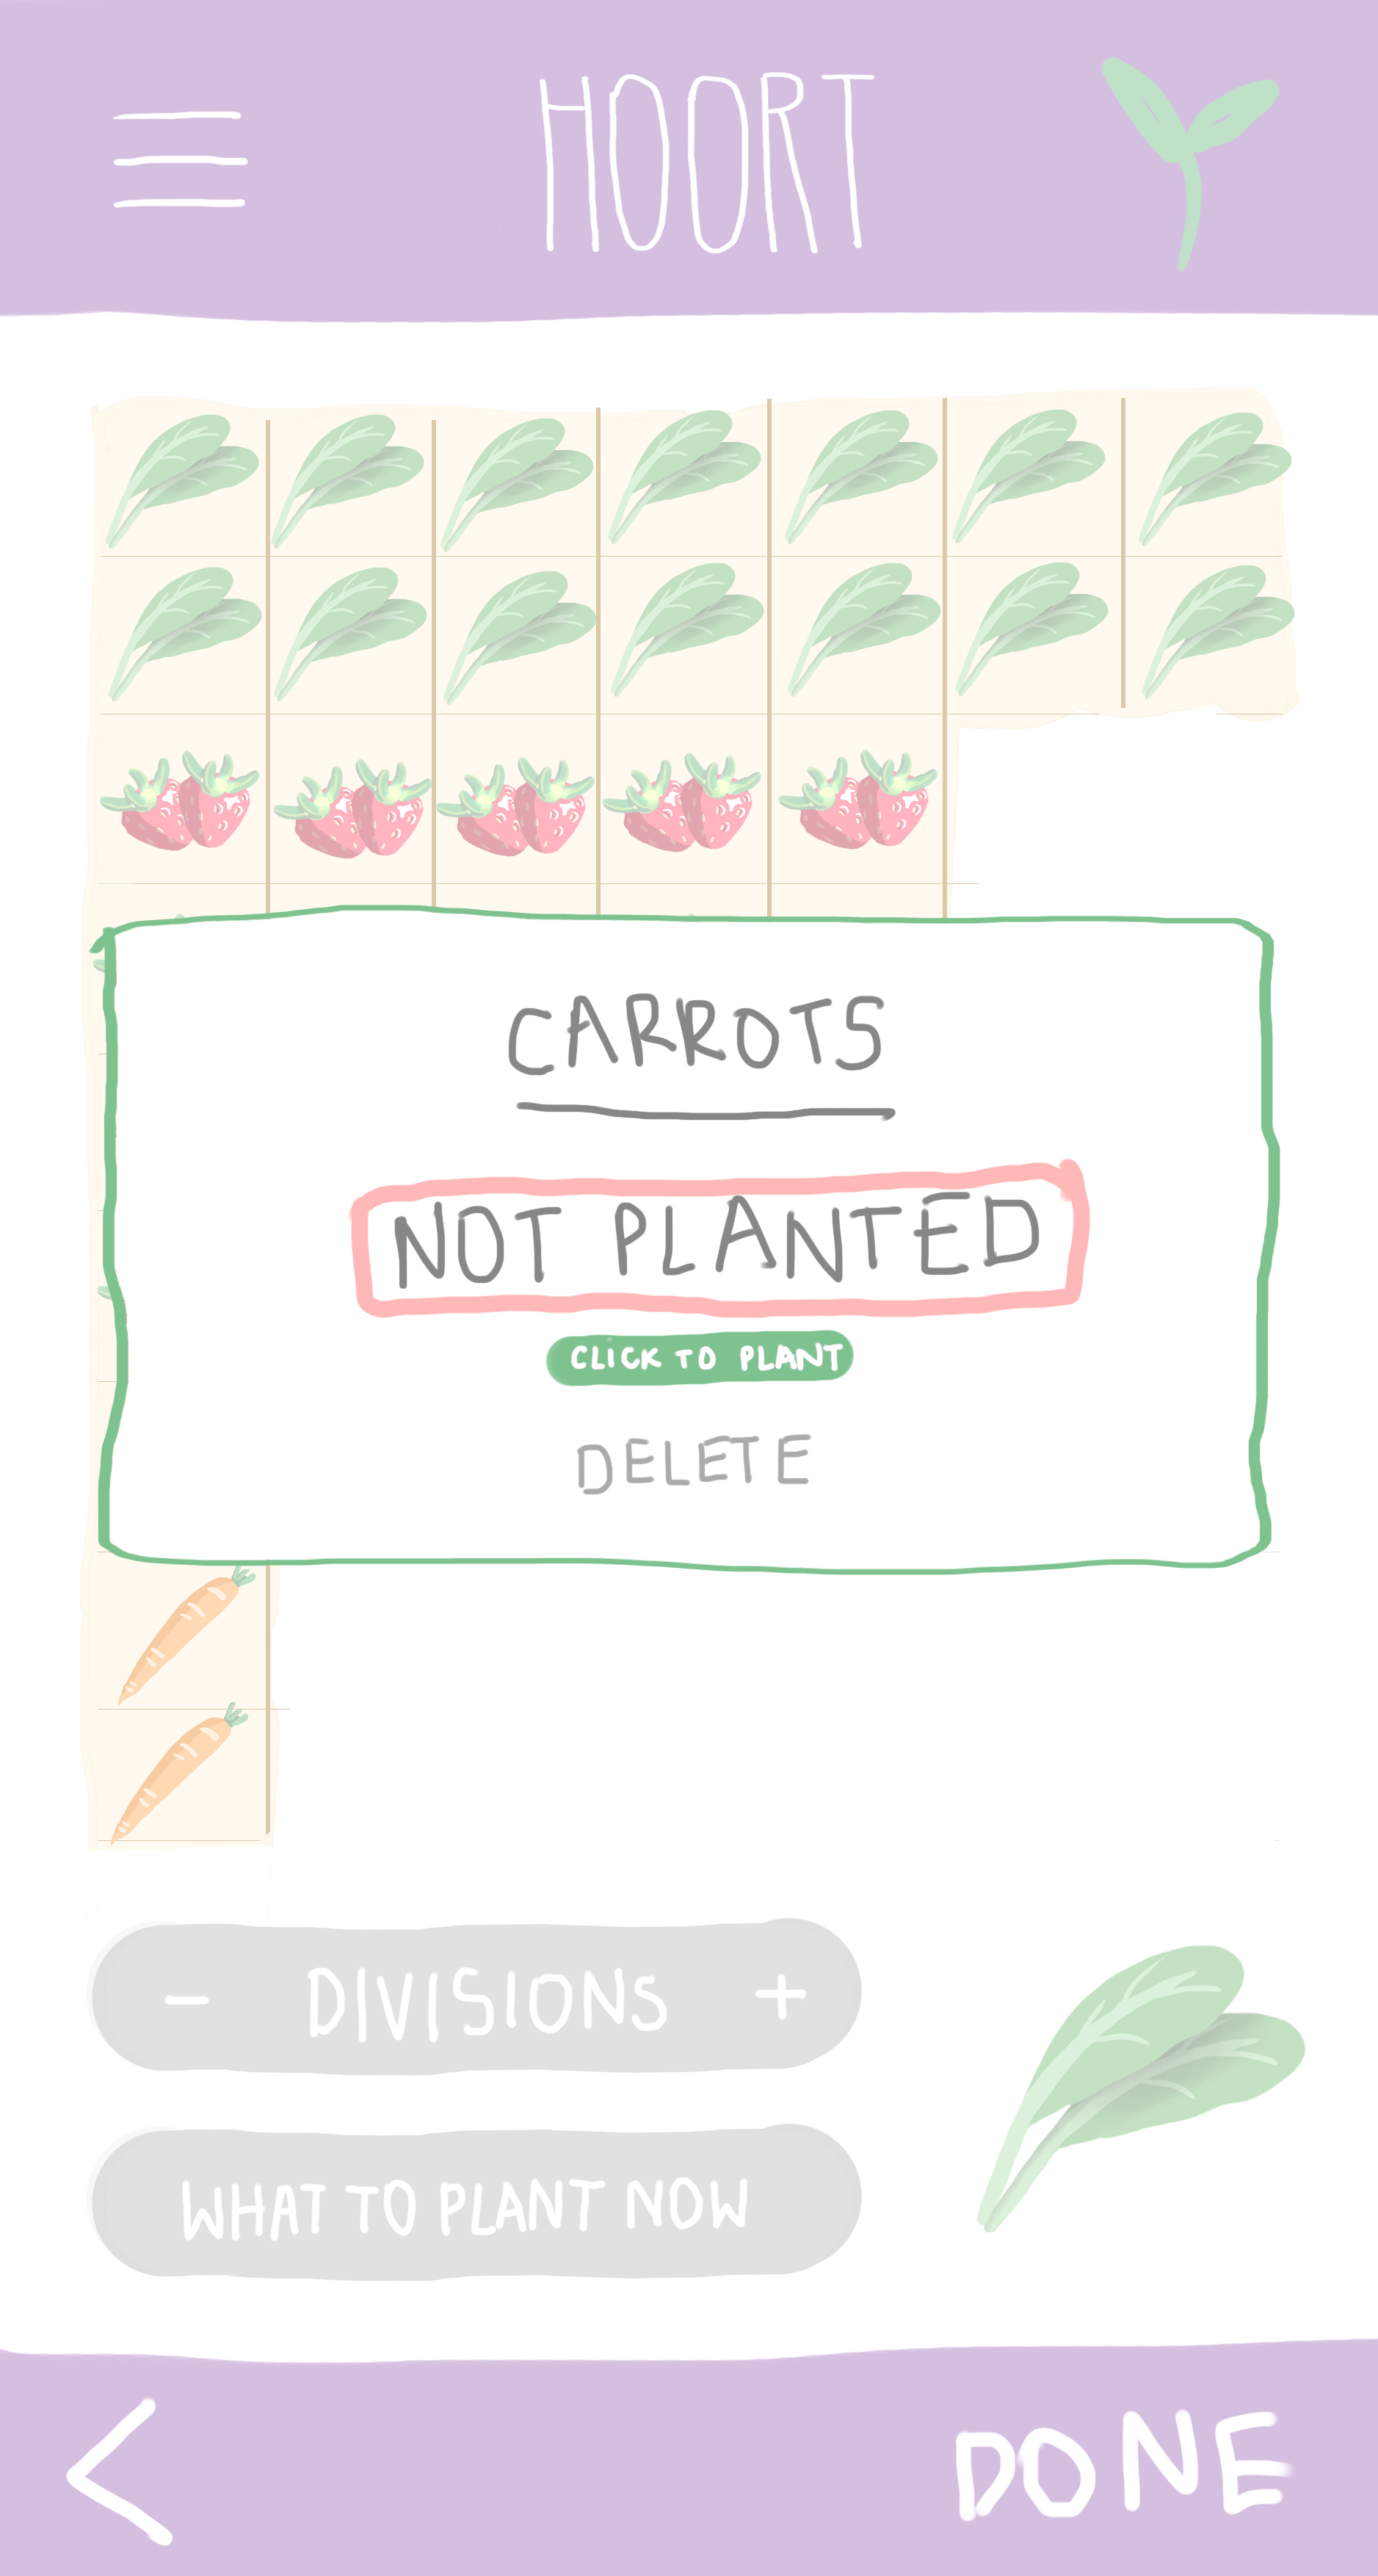 HOORT
CARROTS
NOT PLANTED
CLICK TO PLANT
DELETE
- DIVISIONS +
WHAT TO PLANT NOW
< DONE